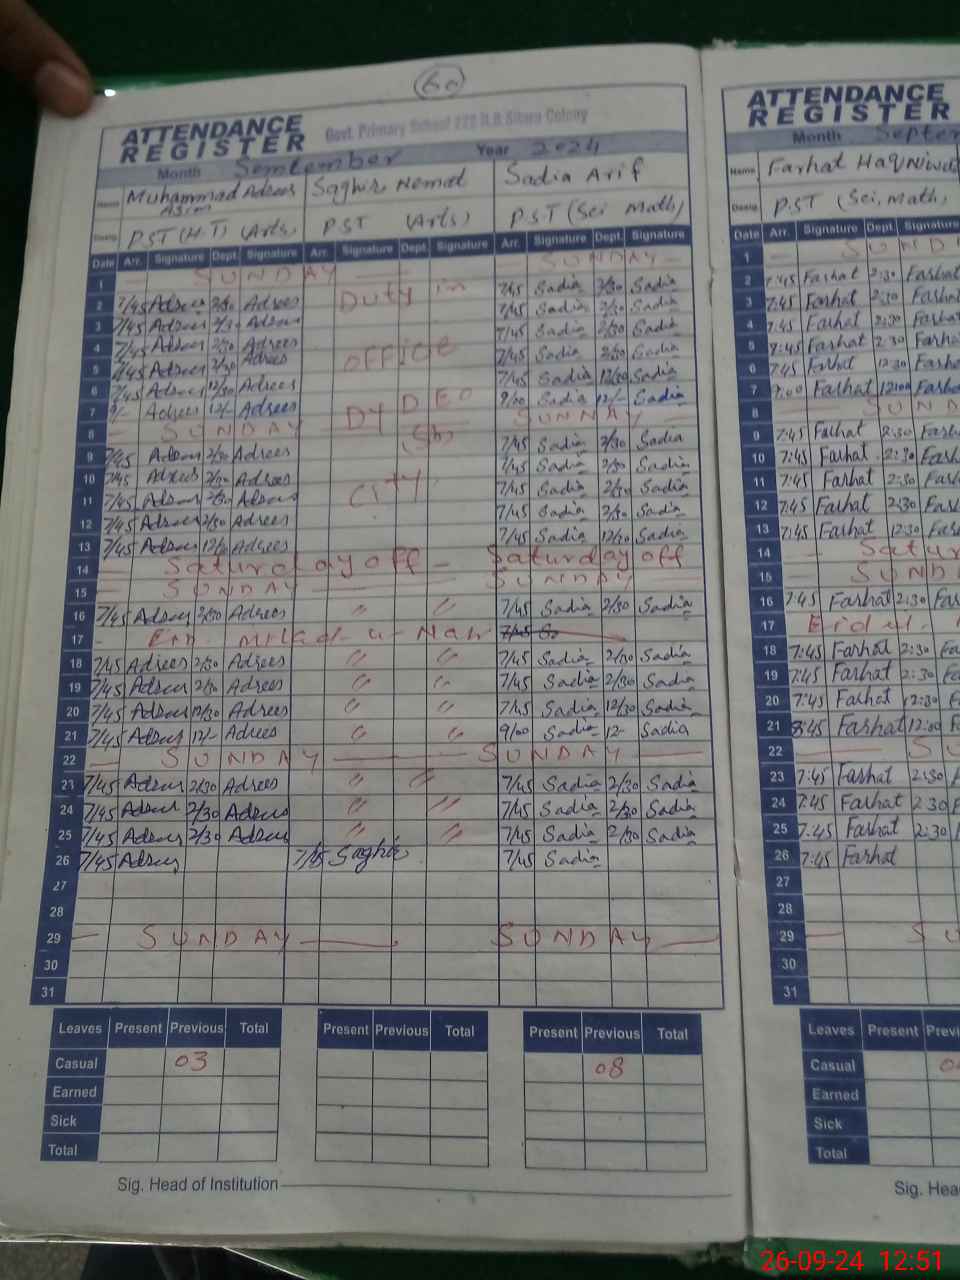 60
ATTENDANCE REGISTER Govt. Primary School
Month September Year 2024
Name Muhammad Adrees Asim Saghir Nemat Sadia Arif
Desig. PST (H.T) (Arts) PST (Arts) PST (Sci Math)
Date Arr. Signature Dept. Signature Arr. Signature Dept. Signature Arr. Signature Dept. Signature
1 SUNDAY SUNDAY
2 7/45 Adrees 2/30 Adrees Duty in 7/45 Sadia 2/30 Sadia
3 7/45 Adrees 2/30 Adrees 7/45 Sadia 2/30 Sadia
4 7/45 Adrees 2/30 Adrees office 7/45 Sadia 2/30 Sadia
5 7/45 Adrees 2/30 Adrees 7/45 Sadia 2/30 Sadia
6 7/45 Adrees 12/30 Adrees 7/45 Sadia 12/30 Sadia
7 9/- Adrees 12/- Adrees Dy DEO 9/00 Sadia 12/- Sadia
8 SUNDAY SUNDAY
9 7/45 Adrees 2/30 Adrees 7/45 Sadia 2/30 Sadia
10 7/45 Adrees 2/30 Adrees 7/45 Sadia 2/30 Sadia
11 7/45 Adrees 2/30 Adrees CITY 7/45 Sadia 2/30 Sadia
12 7/45 Adrees 2/30 Adrees 7/45 Sadia 2/30 Sadia
13 7/45 Adrees 12/30 Adrees 7/45 Sadia 12/30 Sadia
14 Saturday off Saturday off
15 SUNDAY SUNDAY
16 7/45 Adrees 2/30 Adrees " " 7/45 Sadia 2/30 Sadia
17 Milad-u-Nabi 7/45
18 7/45 Adrees 2/30 Adrees " " 7/45 Sadia 2/30 Sadia
19 7/45 Adrees 2/30 Adrees " " 7/45 Sadia 2/30 Sadia
20 7/45 Adrees 12/30 Adrees " " 7/45 Sadia 12/30 Sadia
21 7/45 Adrees 12/- Adrees " " 9/00 Sadia 12- Sadia
22 SUNDAY SUNDAY
23 7/45 Adrees 2/30 Adrees " " 7/45 Sadia 2/30 Sadia
24 7/45 Adrees 2/30 Adrees " " 7/45 Sadia 2/30 Sadia
25 7/45 Adrees 2/30 Adrees " " 7/45 Sadia 2/30 Sadia
26 7/45 Adrees 7/45 Saghir 7/45 Sadia
27
28
29 SUNDAY SUNDAY
30
31
Leaves Present Previous Total Present Previous Total Present Previous Total
Casual 03 08
Earned
Sick
Total
Sig. Head of Institution
ATTENDANCE REGISTER
Month
Name Farhat
Desig. PST (Sci, Math)
Date Arr. Signature Dept. Signature
1
2 7:45 Farhat 2:30 Farhat
3 7:45 Farhat 2:30 Farhat
4 7:45 Farhat 2:30 Farhat
5 7:45 Farhat 2:30 Farhat
6 7:45 Farhat 12:30
7 9:00 Farhat 12:00
8
9 7:45 Farhat 2:30
10 7:45 Farhat 2:30
11 7:45 Farhat 2:30
12 7:45 Farhat 2:30
13 7:45 Farhat 12:30
14
15
16 7:45 Farhat 2:30
17 Eid ul
18 7:45 Farhat 2:30
19 7:45 Farhat 2:30
20 7:45 Farhat 12:30
21 8:45 Farhat 12:00
22
23 7:45 Farhat 2:30
24 7:45 Farhat 2:30
25 7:45 Farhat 2:30
26 7:45 Farhat
27
28
29
30
31
Leaves Present
Casual
Earned
Sick
Total
Sig.
26-09-24 12:51